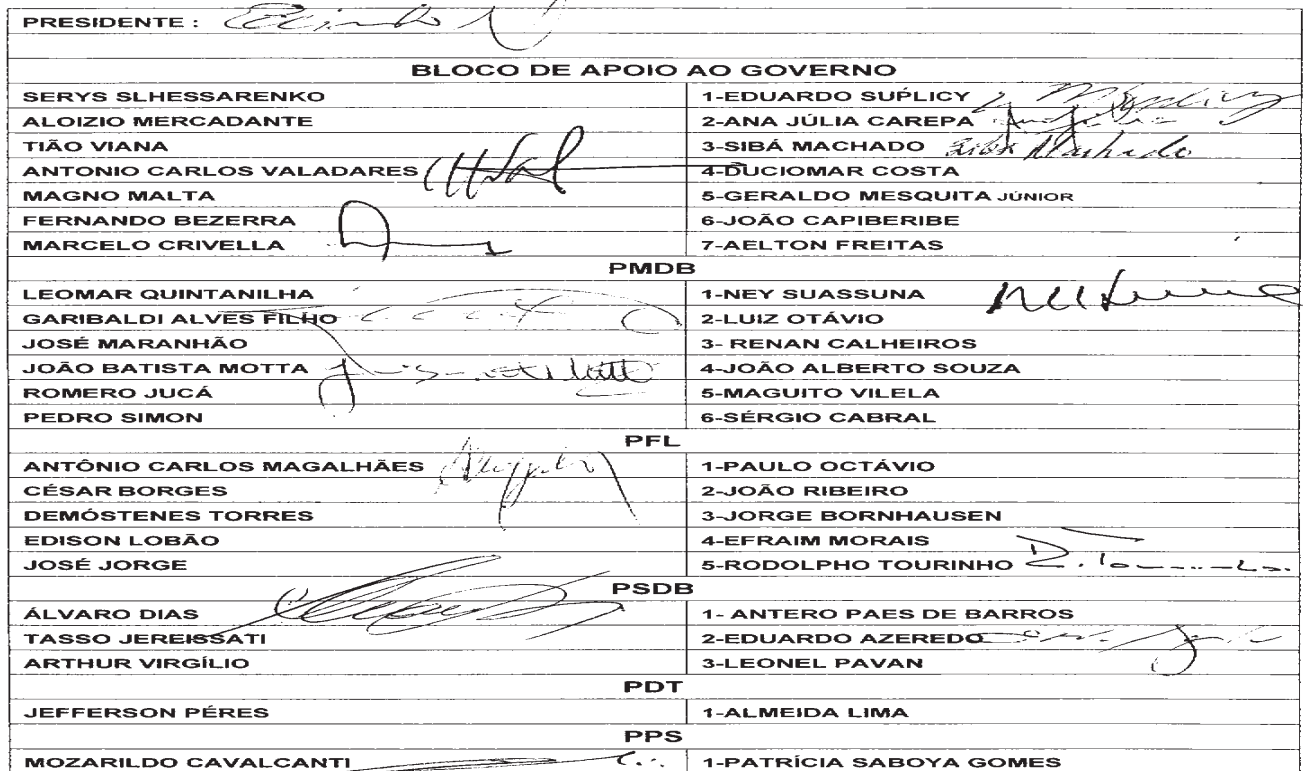 PRESIDENTE :
BLOCO DE APOIO AO GOVERNO
SERYS SLHESSARENKO 1-EDUARDO SUPLICY
ALOIZIO MERCADANTE 2-ANA JÚLIA CAREPA
TIÃO VIANA 3-SIBÁ MACHADO Sibá Machado
ANTONIO CARLOS VALADARES 4-DUCIOMAR COSTA
MAGNO MALTA 5-GERALDO MESQUITA JÚNIOR
FERNANDO BEZERRA 6-JOÃO CAPIBERIBE
MARCELO CRIVELLA 7-AELTON FREITAS
PMDB
LEOMAR QUINTANILHA 1-NEY SUASSUNA
GARIBALDI ALVES FILHO 2-LUIZ OTÁVIO
JOSÉ MARANHÃO 3- RENAN CALHEIROS
JOÃO BATISTA MOTTA 4-JOÃO ALBERTO SOUZA
ROMERO JUCÁ 5-MAGUITO VILELA
PEDRO SIMON 6-SÉRGIO CABRAL
PFL
ANTÔNIO CARLOS MAGALHÃES 1-PAULO OCTÁVIO
CÉSAR BORGES 2-JOÃO RIBEIRO
DEMÓSTENES TORRES 3-JORGE BORNHAUSEN
EDISON LOBÃO 4-EFRAIM MORAIS
JOSÉ JORGE 5-RODOLPHO TOURINHO
PSDB
ÁLVARO DIAS 1- ANTERO PAES DE BARROS
TASSO JEREISSATI 2-EDUARDO AZEREDO
ARTHUR VIRGÍLIO 3-LEONEL PAVAN
PDT
JEFFERSON PÉRES 1-ALMEIDA LIMA
PPS
MOZARILDO CAVALCANTI 1-PATRÍCIA SABOYA GOMES